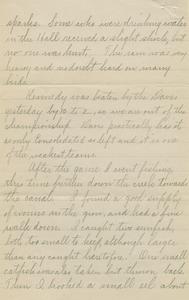 sparks. Some who were drinking water
in the Hall received a slight shock, but
no one was hurt. The rain was very
heavy and no doubt hard on many
birds.
Kennedy was beaten by the Dams
yesterday by 10 to 2, so we are out of the
championship. Dam practically has it
as only consolidated is left and it is one
of the weakest teams.
After the game I went fishing,
this time further down the creek towards
the canal. I found a good supply
of worms in the grove, and had a fine
walk down. I caught two sunfish,
both too small to keep although larger
than any caught heretofore. One small
catfish was also taken but thrown back.
Then I hooked a small eel about